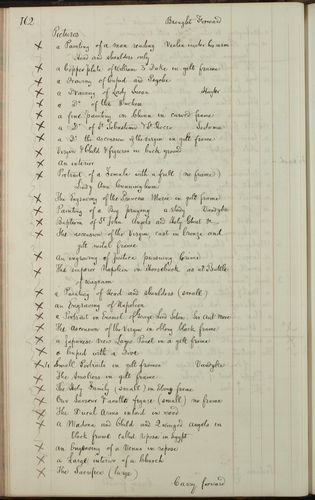 162
Brought Forward
Pictures
x a Painting of a man reading under his arm
Head and shoulders only
x a Copper plate of William 3d Duke in gilt frame
x a Drawing of Cupid and Psyche
x a Drawing of Lady Susan
x a Do of the Duchess
x a fine painting on China in carved frame
x a Do of St Sebastian & St Rocco
x a Do the ascension of the virgin in gilt frame
x Virgin & Child & figures in back ground
x An interior
x Portrait of a Female with a Ruff (no frame)
Lady Ann Cunningham
x The Engraving of the Princess Marie in gilt frame
x Painting of a Boy praying a study Vandyke
x Baptism of St John Angels and Holy Ghost
x The ascension of the Virgin, cast in bronze and
gilt metal frame
x An engraving of Justice pursuing Crime
x The emperor Napoleon on Horseback as at Battle
of Wagram
x a Painting of Head and shoulders (small)
x an Engraving of Napoleon
x a Portrait in Enamel of George Lord Seton Sir Ant. More
x The ascension of the Virgin in oblong black frame
x a japanese view Lager Panel in a gilt frame
x a Cupid with a Dove
x Small Portraits in gilt frames Vandyke
x The Smokers in gilt frame
x The Holy Family (small) in oblong frame
x Our Saviour & another figure (small) no frame
x The Ducal Arms inlaid in wood
x a Madona and Child and 2 winged angels in
black frame called repose in Egypt
x an Engraving of a Venus in repose
x a Large interior of a Church
x The Sacrifice (large)
Carry forward